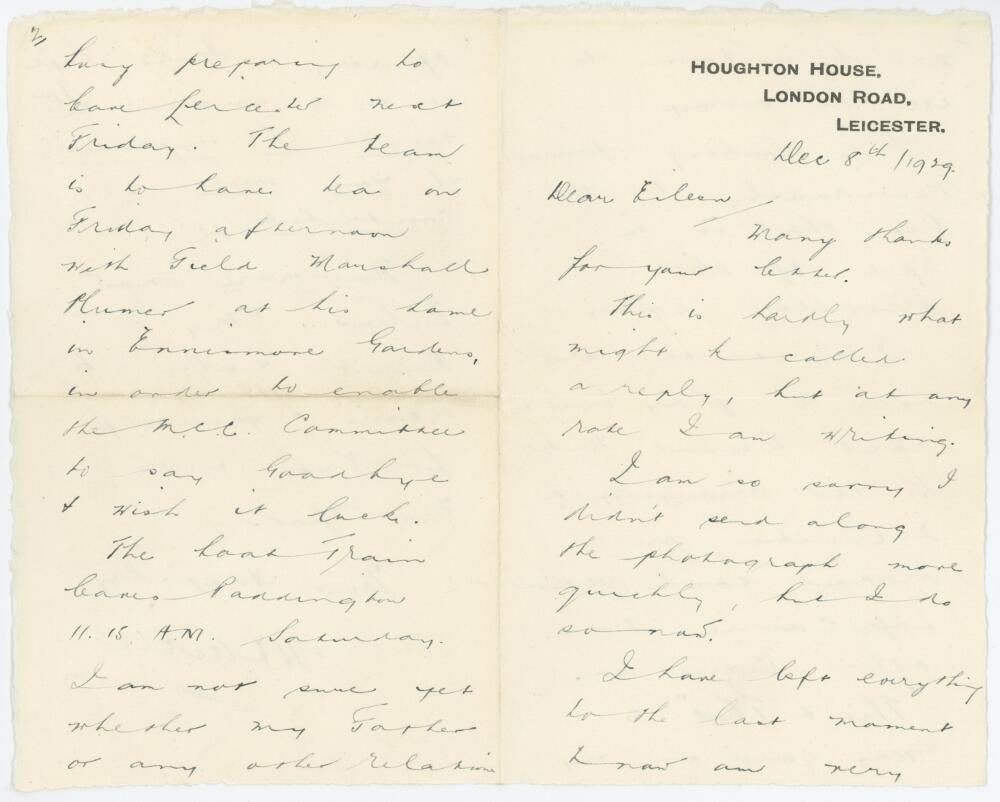 HOUGHTON HOUSE,
LONDON ROAD,
LEICESTER.
Dec 8th/1929.
Dear Eileen
Many thanks
for your letter.
This is hardly what
might be called
a reply, but at any
rate I am writing.
I am so sorry I
didn't send along
the photograph more
quickly, but I do
so now.
I have left everything
to the last moment
& now am very
2/
busy preparing to
leave Leicester next
Friday. The team
is to have tea on
Friday afternoon
with Field Marshall
Plumer at his home
in Ennismore Gardens,
in order to enable
the M.C.C. Committee
to say Goodbye
& wish it luck.
The boat Train
leaves Paddington
11.15 A.M. Saturday.
I am not sure yet
whether my Father
or any other relations